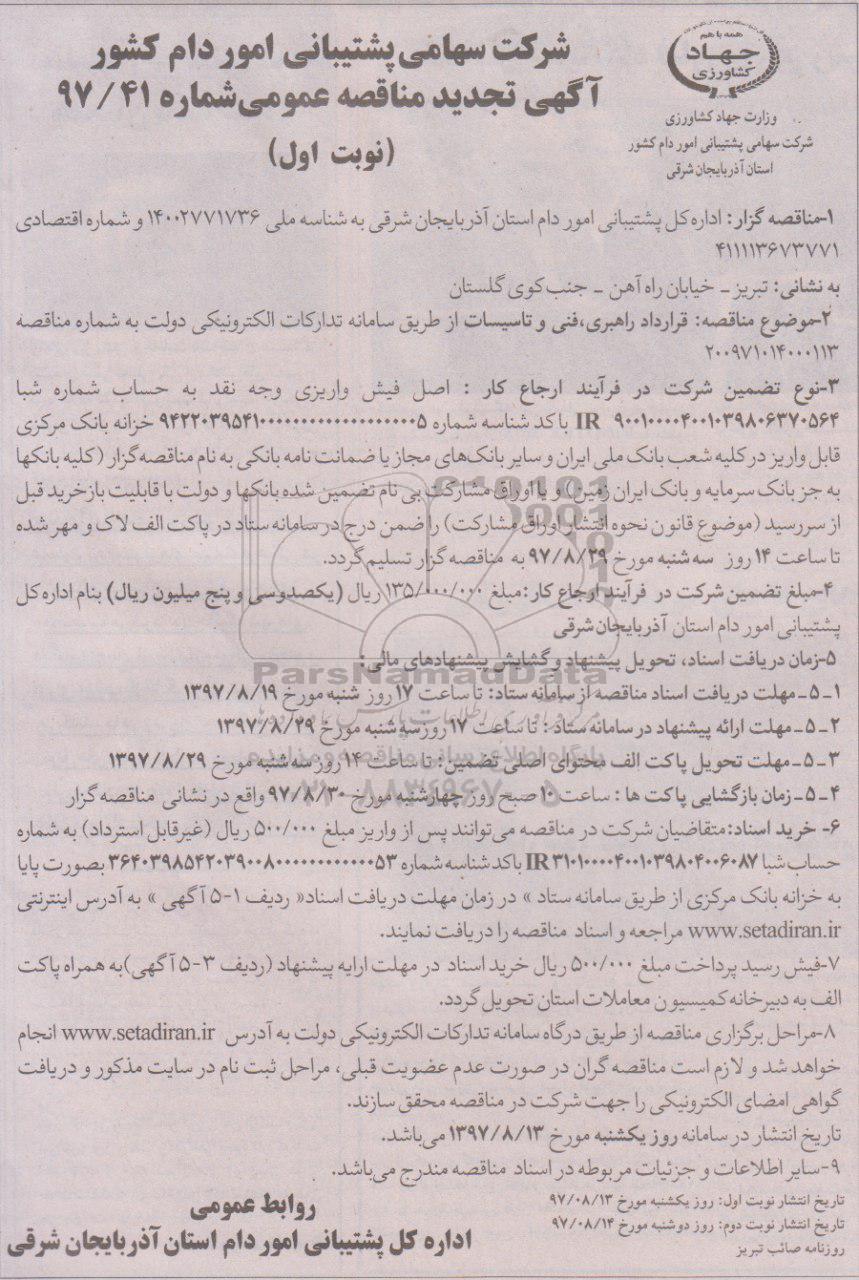 همه با هم
جهاد
کشاورزی
وزارت جهاد کشاورزی
شرکت سهامی پشتیبانی امور دام کشور
استان آذربایجان شرقی
شرکت سهامی پشتیبانی امور دام کشور
آگهی تجدید مناقصه عمومی شماره ۹۷/۴۱
(نوبت اول)
۱-مناقصه گزار: اداره کل پشتیبانی امور دام استان آذربایجان شرقی به شناسه ملی ۱۴۰۰۲۷۷۱۷۳۶ و شماره اقتصادی
۴۱۱۱۱۳۶۷۳۷۷۱
به نشانی: تبریز ـ خیابان راه آهن ـ جنب کوی گلستان
۲-موضوع مناقصه: قرارداد راهبری،فنی و تاسیسات از طریق سامانه تدارکات الکترونیکی دولت به شماره مناقصه
۲۰۰۹۷۱۰۱۴۰۰۰۱۱۳
۳-نوع تضمین شرکت در فرآیند ارجاع کار : اصل فیش واریزی وجه نقد به حساب شماره شبا
IR ۹۰۰۱۰۰۰۰۴۰۰۱۰۳۹۸۰۶۳۷۰۵۶۴ با کد شناسه شماره خزانه بانک مرکزی
قابل واریز در کلیه شعب بانک ملی ایران و سایر بانک‌های مجاز یا ضمانت نامه بانکی به نام مناقصه گزار (کلیه بانکها
به جز بانک سرمایه و بانک ایران زمین) و یا اوراق مشارکت بی نام تضمین شده بانکها و دولت با قابلیت بازخرید قبل
از سررسید (موضوع قانون نحوه انتشار اوراق مشارکت) را ضمن درج در سامانه ستاد در پاکت الف لاک و مهر شده
تا ساعت ۱۴ روز سه شنبه مورخ ۹۷/۸/۲۹ به مناقصه گزار تسلیم گردد.
۴-مبلغ تضمین شرکت در فرآیند ارجاع کار:مبلغ ۱۳۵/۰۰۰/۰۰۰ ریال (یکصدوسی و پنج میلیون ریال) بنام اداره کل
پشتیبانی امور دام استان آذربایجان شرقی
۵-زمان دریافت اسناد، تحویل پیشنهاد و گشایش پیشنهادهای مالی:
۱ـ۵ـ مهلت دریافت اسناد مناقصه از سامانه ستاد: تا ساعت ۱۷ روز شنبه مورخ ۱۳۹۷/۸/۱۹
۲ـ۵ـ مهلت ارائه پیشنهاد در سامانه ستاد : تا ساعت ۱۷ روز سه شنبه مورخ ۱۳۹۷/۸/۲۹
۳ـ۵ـ مهلت تحویل پاکت الف محتوای اصلی تضمین : تا ساعت ۱۴ روز سه شنبه مورخ ۱۳۹۷/۸/۲۹
۴ـ۵ـ زمان بازگشایی پاکت ها : ساعت ۱۰ صبح روز چهارشنبه مورخ ۹۷/۸/۳۰ واقع در نشانی مناقصه گزار
۶- خرید اسناد:متقاضیان شرکت در مناقصه می‌توانند پس از واریز مبلغ ۵۰۰/۰۰۰ ریال (غیرقابل استرداد) به شماره
حساب شبا IR۳۱۰۱۰۰۰۰۴۰۰۱۰۳۹۸۰۴۰۰۶۰۸۷ با کد شناسه شماره بصورت پایا
به خزانه بانک مرکزی از طریق سامانه ستاد » در زمان مهلت دریافت اسناد« ردیف ۱-۵ آگهی » به آدرس اینترنتی
www.setadiran.ir مراجعه و اسناد مناقصه را دریافت نمایند.
۷-فیش رسید پرداخت مبلغ ۵۰۰/۰۰۰ ریال خرید اسناد در مهلت ارایه پیشنهاد (ردیف ۳-۵ آگهی)به همراه پاکت
الف به دبیرخانه کمیسیون معاملات استان تحویل گردد.
۸-مراحل برگزاری مناقصه از طریق درگاه سامانه تدارکات الکترونیکی دولت به آدرس www.setadiran.ir انجام
خواهد شد و لازم است مناقصه گران در صورت عدم عضویت قبلی، مراحل ثبت نام در سایت مذکور و دریافت
گواهی امضای الکترونیکی را جهت شرکت در مناقصه محقق سازند.
تاریخ انتشار در سامانه روز یکشنبه مورخ ۱۳۹۷/۸/۱۳ می‌باشد.
۹-سایر اطلاعات و جزئیات مربوطه در اسناد مناقصه مندرج می‌باشد.
تاریخ انتشار نوبت اول: روز یکشنبه مورخ ۹۷/۰۸/۱۳
تاریخ انتشار نوبت دوم: روز دوشنبه مورخ ۹۷/۰۸/۱۴
روزنامه صائب تبریز
روابط عمومی
اداره کل پشتیبانی امور دام استان آذربایجان شرقی
ParsNamadData
پایگاه اطلاع رسانی مناقصه و مزایده